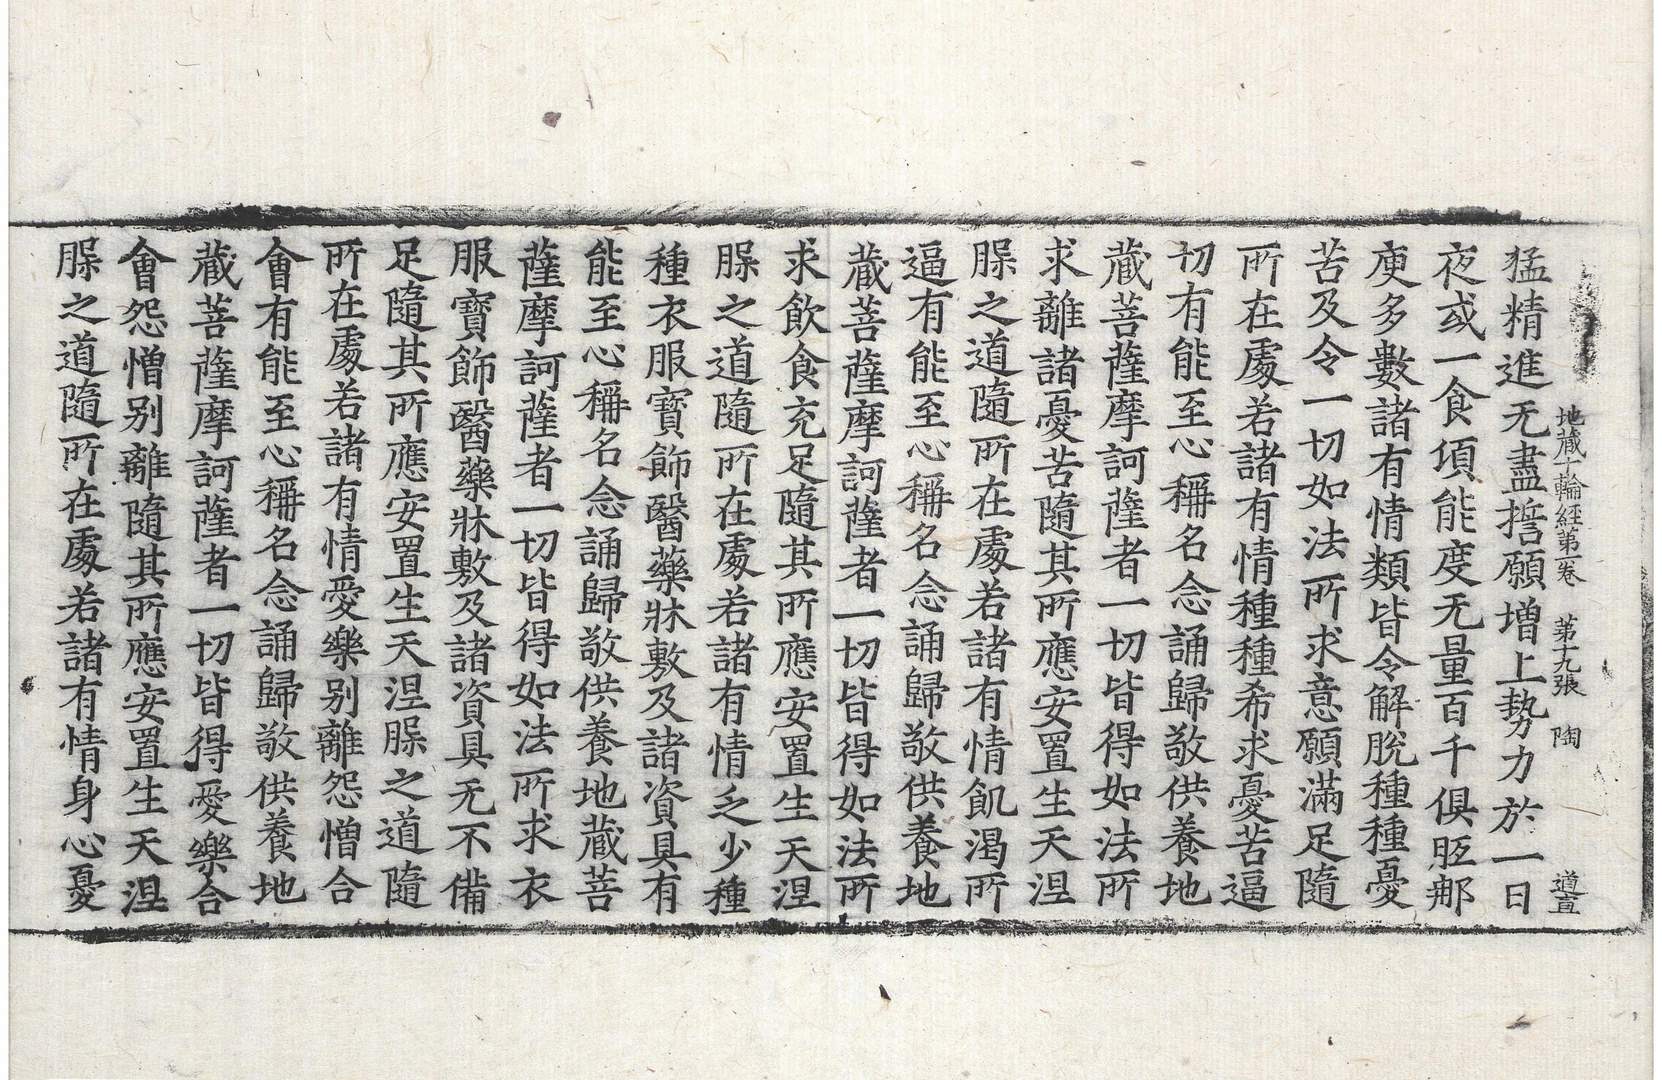 地藏十輪經第一卷 第十九張 陶 道直
猛精進无盡誓願增上勢力於一日
夜或一食頃能度无量百千俱胝那
庾多數諸有情類皆令解脫種種憂
苦及令一切如法所求意願滿足隨
所在處若諸有情種種希求憂苦逼
切有能至心稱名念誦歸敬供養地
藏菩薩摩訶薩者一切皆得如法所
求離諸憂苦隨其所應安置生天涅
槃之道隨所在處若諸有情飢渴所
逼有能至心稱名念誦歸敬供養地
藏菩薩摩訶薩者一切皆得如法所
求飲食充足隨其所應安置生天涅
槃之道隨所在處若諸有情乏少種
種衣服寶飾醫藥牀敷及諸資具有
能至心稱名念誦歸敬供養地藏菩
薩摩訶薩者一切皆得如法所求衣
服寶飾醫藥牀敷及諸資具无不備
足隨其所應安置生天涅槃之道隨
所在處若諸有情愛樂別離怨憎合
會有能至心稱名念誦歸敬供養地
藏菩薩摩訶薩者一切皆得愛樂合
會怨憎別離隨其所應安置生天涅
槃之道隨所在處若諸有情身心憂